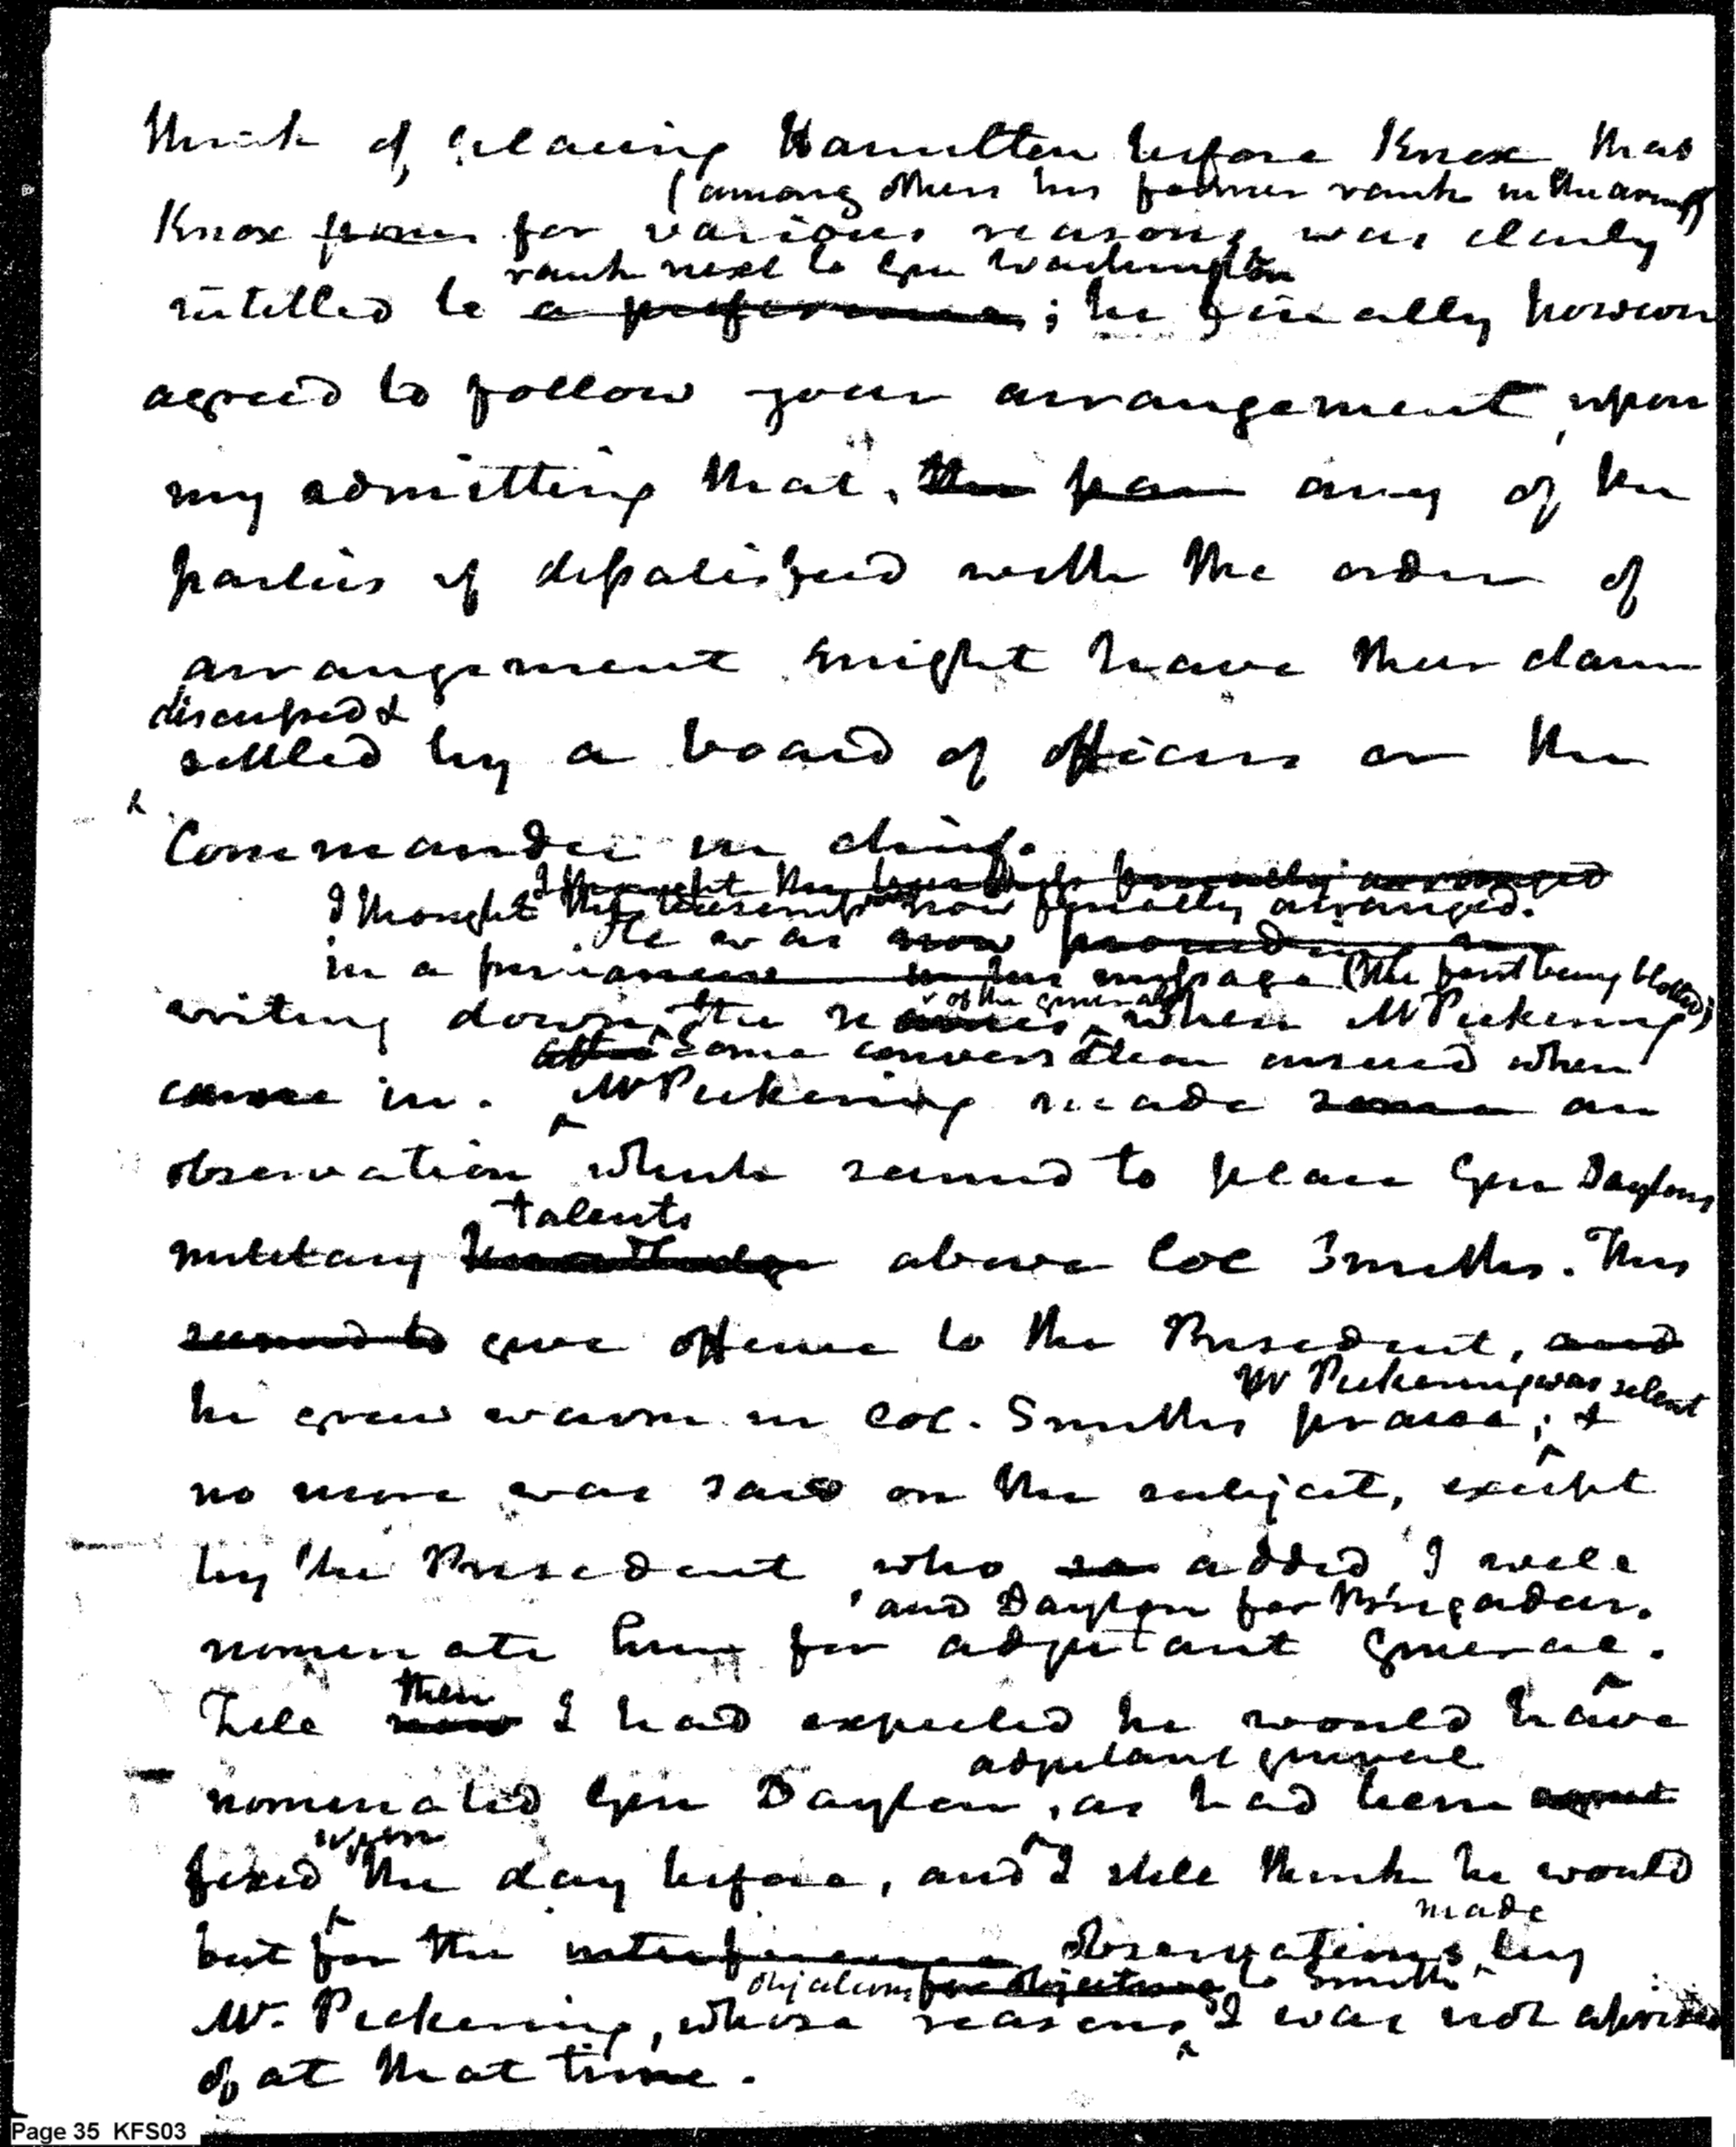 think of placing Hamilton before Knox, that
(among others his former rank in the army)
Knox for various reasons, was clearly
rank next to Gen Washington
intitled to a preference; he finally however
agreed to follow your arrangement, upon
my admitting that, the any of the
parties if dissatisfied with the order of
arrangement might have their claim
discussed &
settled by a board of officers or the
Commander in chief.
I thought the business finally arranged
I thought this business now finally arranged.
He was now proceeding
in a message (the first being blotted)
of the generals
writing down the names, when Mr Pickering
after some conversation ensued when
came in. Mr Pickering made some an
observation which seemed to place Gen Daytons
talents
military knowledge above Col Smiths. This
seemed to give offence to the President, and
Mr Pickering was silent
he grew warm in Col. Smiths praise; &
no more was said on the subject, except
by the President who added, I will
and Dayton for Brigadier.
nominate him for adjutant General.
then
Till now I had expected he would have
adjutant general
nominated Gen Dayton, as had been agreed
upon
fixed the day before, and I still think he would
made
but for the interference observations by
objections for objecting to Smith
Mr. Pickering, whose reasons I was not apprised
of at that time.
Page 35 KFS03